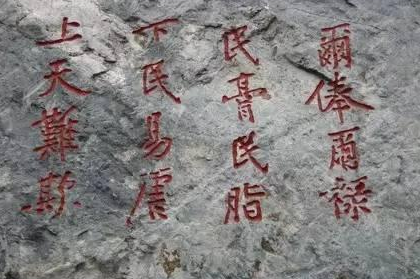 爾俸爾祿
民膏民脂
下民易虐
上天難欺